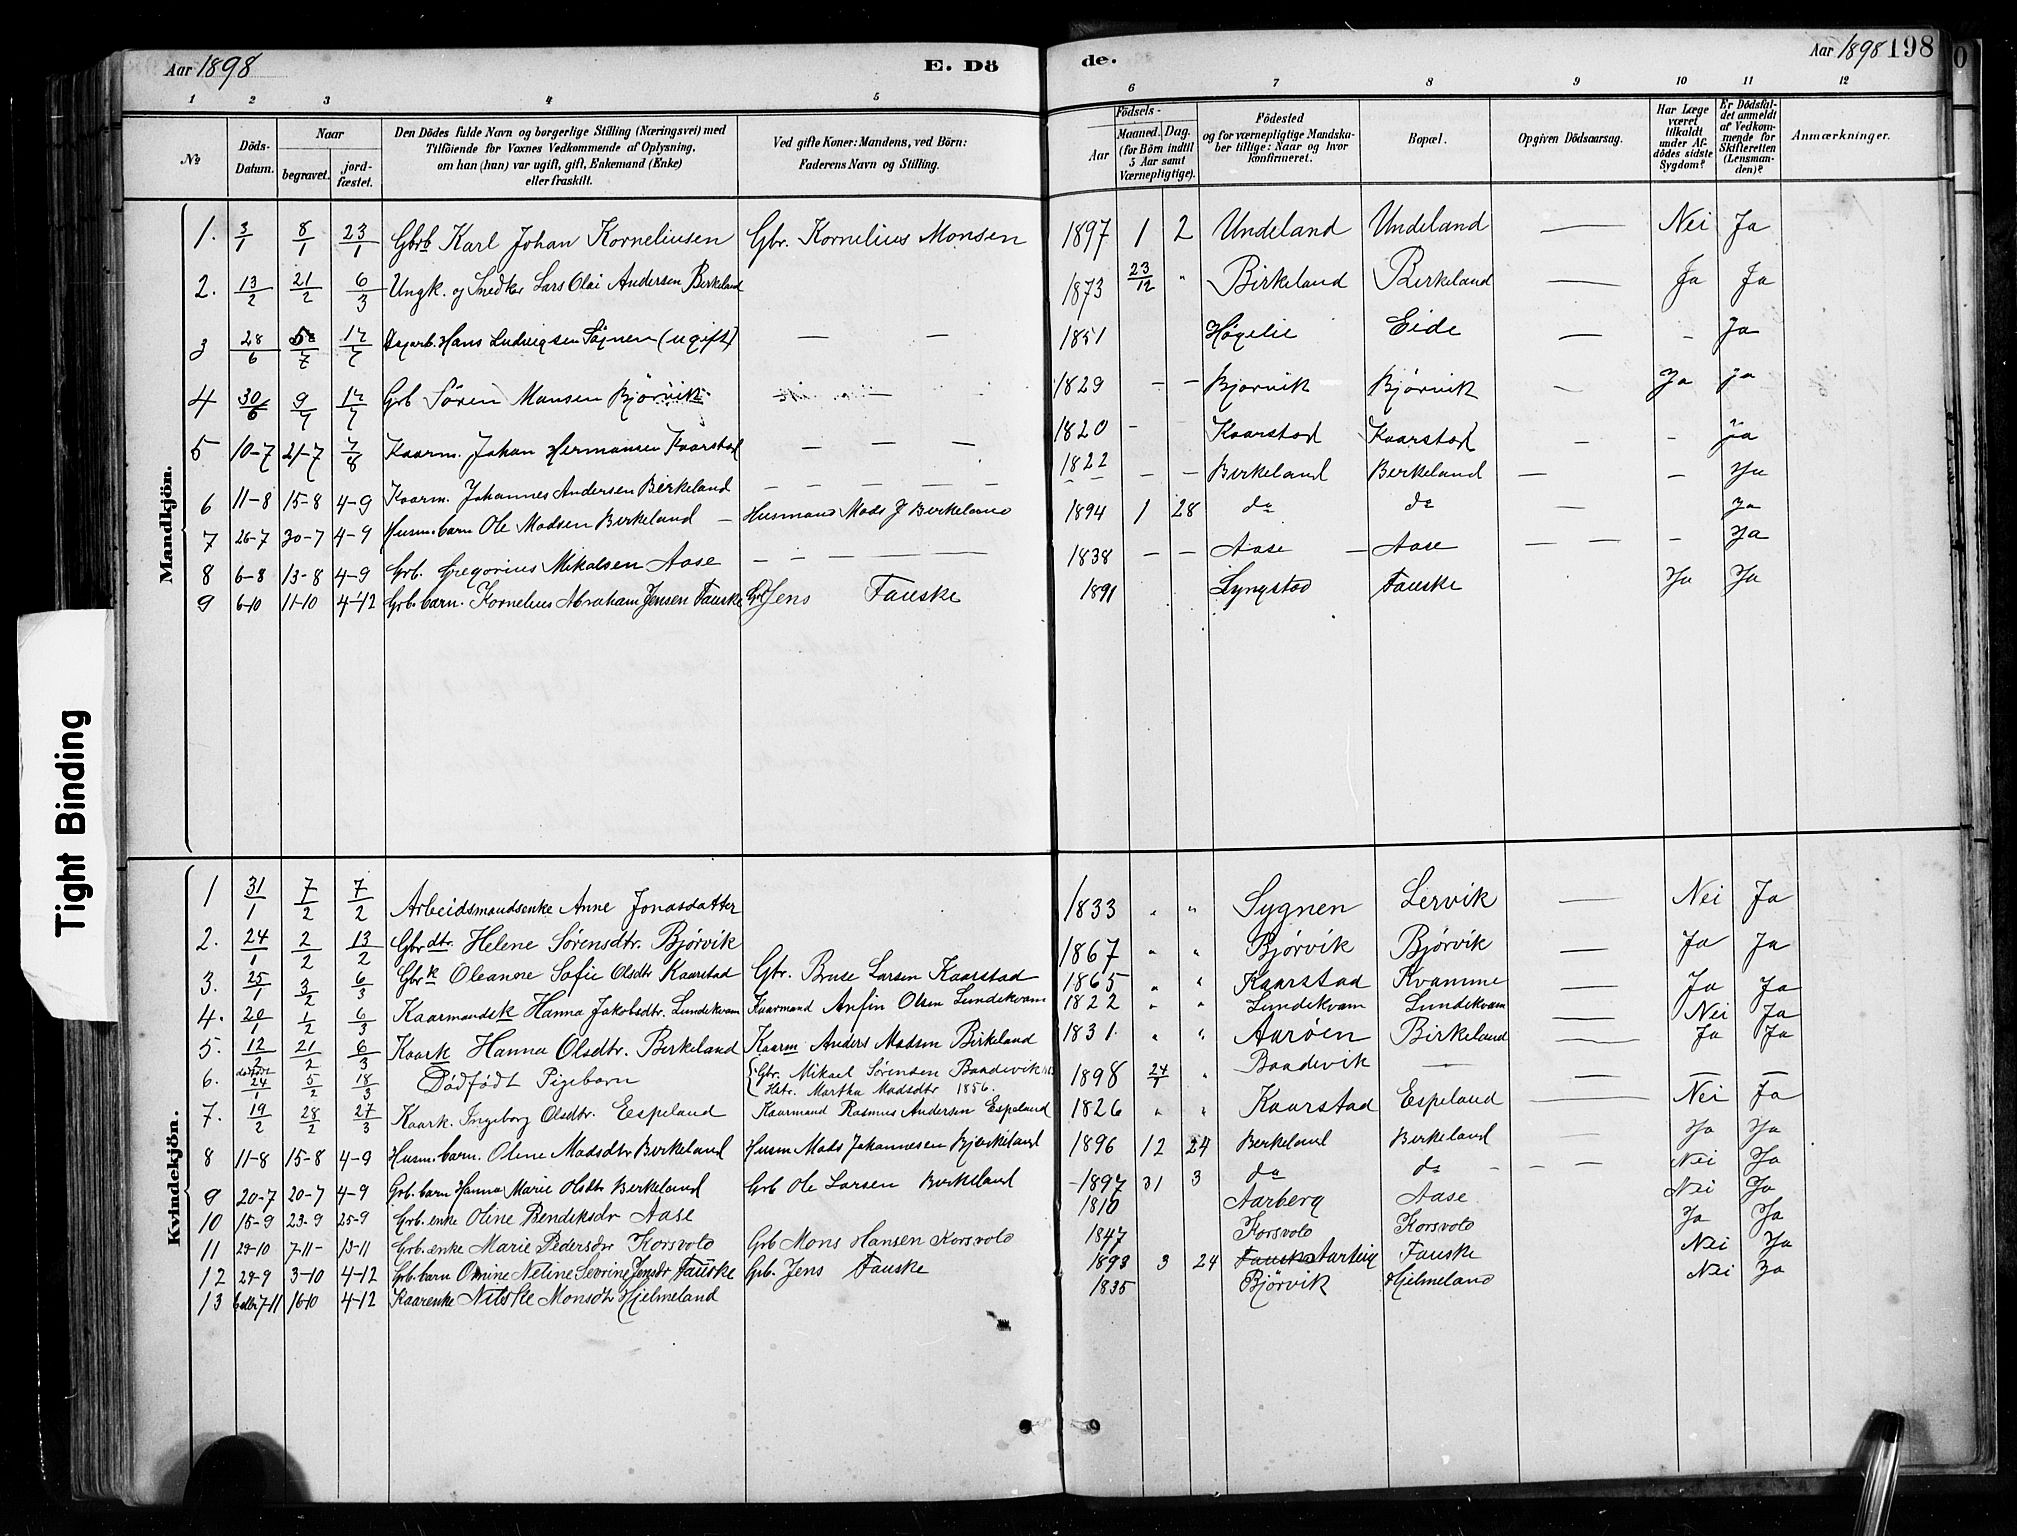 Aar 1898
E. Dö
de.
Aar 1898
198
1 2 3 4 5 6 7 8 9 10 11 12
No
Döds-
Datum.
Naar
begravet.
jord-
fæstet.
Den Dödes fulde Navn og borgerlige Stilling (Næringsvei) med
Tilföiende for Voxnes Vedkommende af Oplysning,
om han (hun) var ugift, gift, Enkemand (Enke)
eller fraskilt.
Ved gifte Koner: Mandens, ved Börn:
Faderens Navn og Stilling.
Födsels-
Aar
Maaned. Dag.
(for Börn indtil
5 Aar samt
Værnepligtige).
Födested
og for værnepligtige Mandska-
ber tillige: Naar og hvor
konfirmeret.
Bopæl.
Opgiven Dödsaarsag.
Har Læge
været
tilkaldt
under Af-
dödes sidste
Sygdom?
Er Dödsfal-
det anmeldt
af Vedkom-
mende for
Skifteretten
(Lensman-
den)?
Anmærkninger.
Mandkjön.
1. 3/1 8/1 23/1 Gbrb Karl Johan Korneliusen Gbr. Kornelius Monsen 1897 1 2 Undeland Undeland — Nei Ja
2. 13/2 21/2 6/3 Ungk. og Snedker Lars Olai Andersen Birkeland 1873 23/12 " Birkeland Birkeland — Ja Ja
3 28/6 /7 17/7 Hans Ludvigsen (ugift) — — 1851 Høgelie Eide — - Ja
4 30/6 9/7 17/7 Grb Sören Monsen Bjørvik — 1829 - - Bjørvik Bjørvik — Ja ja
5 10-7 21-7 7/8 Kaarm. Johan Hermansen Kaarstad — — — 1820 - - Kaarstad Kaarstad - - ja
6 11-8 15-8 4-9 Kaarm. Johannes Andersen Birkeland — — — — — 1822 - - Birkeland Birkeland — - Ja
7 26-7 30-7 4-9 Husm. barn Ole Madsen Birkeland — Husmand Mads J Birkeland 1894 1 28 do do — Ja
8 6-8 13-8 4-9 Grb. Gregorius Mikalsen Aase — — 1838 - - Aase — Aase — — - Ja
9 6-10 11-10 4-12 Grb. barn. Kornelius Abraham Jensen Fauske Grb Jens Fauske 1891 Lyngstad Fauske Ja Ja
Kvindekjön.
1 31/1 7/2 7/2 Arbeidsmandsenke Anne Jonasdatter 1833 " " Sygnen Lervik — Nei Ja
2. 24/1 2/2 13/2 Gbrdtr. Helene Sørensdtr. Bjørvik 1867 " " Bjørvik Bjørvik — Ja Ja
3. 25/1 3/2 6/3 Gbrk Oleanne Sofie Olsdtr Kaarstad Gbr. Bruse Larsen Kaarstad 1865 " " Kaarstad Kvamme — Ja Ja
4. 20/1 1/2 6/3 Kaarmandsk Hanna Jakobsdtr. Lundekvam Kaarmand Anfin Olsen Lundekvam 1822 " " Lundekvam Lundekvam — Nei Ja
5. 12/2 21/2 6/3 Kaark Hanna Olsdtr. Birkeland Kaarm Anders Madsen Birkeland 1831. " " Aarøen Birkeland — Ja Ja
6. dødfødt 24/1 5/2 18/3 Dödfödt Pigebarn Gbr. Mikael Sørensen Baadevik
Hstr. Martha Madsdtr 1856. 1898 24/1 " Baadevik — — —
7. 19/2 28/2 27/3 Kaark. Ingeborg Olsdtr. Espeland Kaarmand Rasmus Andersen Espeland 1826 " " Kaarstad Espeland — Nei Ja
8 11-8 15-8 4-9 Husm. barn. Oline Madsdtr Birkeland Husm Mads Johannesen Birkeland 1896 12 24 Birkeland Birkeland — Ja Ja
9 20-7 20-7 4-9 Grb. barn Hanna Marie Olsdtr Birkeland Grb Ole Larsen Birkeland 1897 31 3 do do - - — Nei Ja
10 15-9 23-9 25-9 Grb. enke Oline Bendiksdr Aase 1810 Aarberg Aase Nei Ja
11 29-10 7-11- 13-11 Grb. enke Marie Pedersdr Korsvoto Grb Mons Hansen Korsvoto 1847 Korsvoto Korsvoto Ja Ja
12 29-9 3-10 4-12 Grb. barn Netine Sevrine Jensdr Fauske Grb. Jens Fauske 1893 3 24 Fauske Fauske Nei Ja
13 16-10 4-12 Kaarenke Nilske Monsdtr Hjelmeland 1835 Bjørvik Hjelmeland Nei Ja
Tight Binding